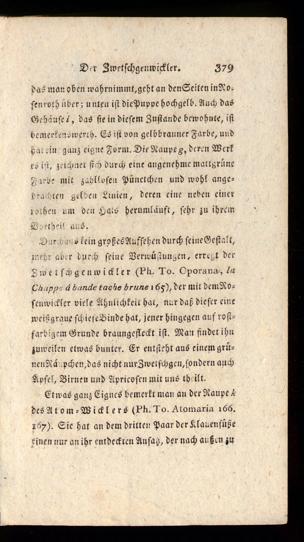 Der Zwetschgenwickler. 379
das man oben wahrnimmt, geht an den Seiten in Ro-
senroth über; unten ist die Puppe hochgelb. Auch das
Gehäuse i, das sie in diesem Zustande bewohnte, ist
bemerkenswerth. Es ist von gelbbrauner Farbe, und
hat ein ganz eigne Form. Die Raupe g, deren Werk
es ist, zeichnet sich durch eine angenehme mattgrüne
Farbe mit zahllosen Pünctchen und wohl ange-
brachten gelben Linien, deren eine neben einer
rothen um den Hals herumläuft, sehr zu ihrem
Vortheil aus.
Durchaus kein großes Aufsehen durch seine Gestalt,
mehr aber durch seine Verwüstungen, erregt der
Zwetschgenwickler (Ph. To. Oporana, la
Chappe à bande tache brune 165), der mit dem Ro-
senwickler viele Ähnlichkeit hat, nur daß dieser eine
weißgraue schiefe Binde hat, jener hingegen auf rost-
farbigem Grunde braungefleckt ist. Man findet ihn
zuweilen etwas bunter. Er entsteht aus einem grü-
nen Räupchen, das nicht nur Zwetschgen, sondern auch
Apfel, Birnen und Apricosen mit uns theilt.
Etwas ganz Eignes bemerkt man an der Raupe k
des Atom-Wicklers (Ph. To. Atomaria 166.
167). Sie hat an dem dritten Paar der Klauenfüße
einen nur an ihr entdeckten Ansatz, der nach außen zu